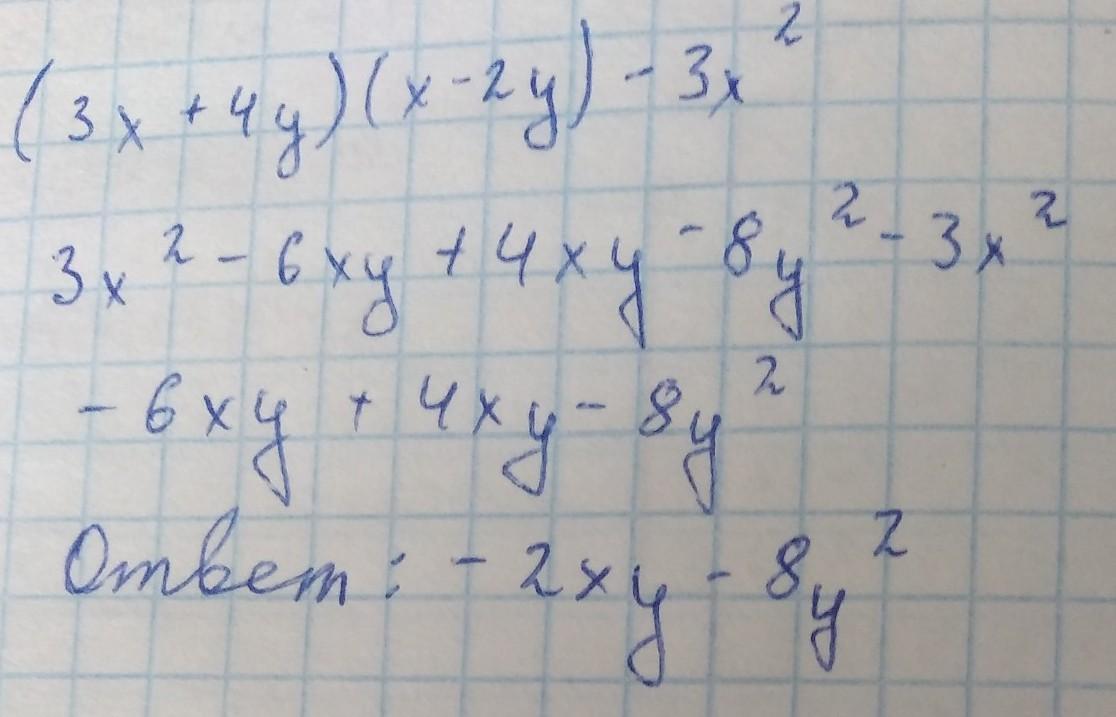 (3x + 4y)(x - 2y) - 3x²
3x² - 6xy + 4xy - 8y² - 3x²
- 6xy + 4xy - 8y²
Ответ: - 2xy - 8y²